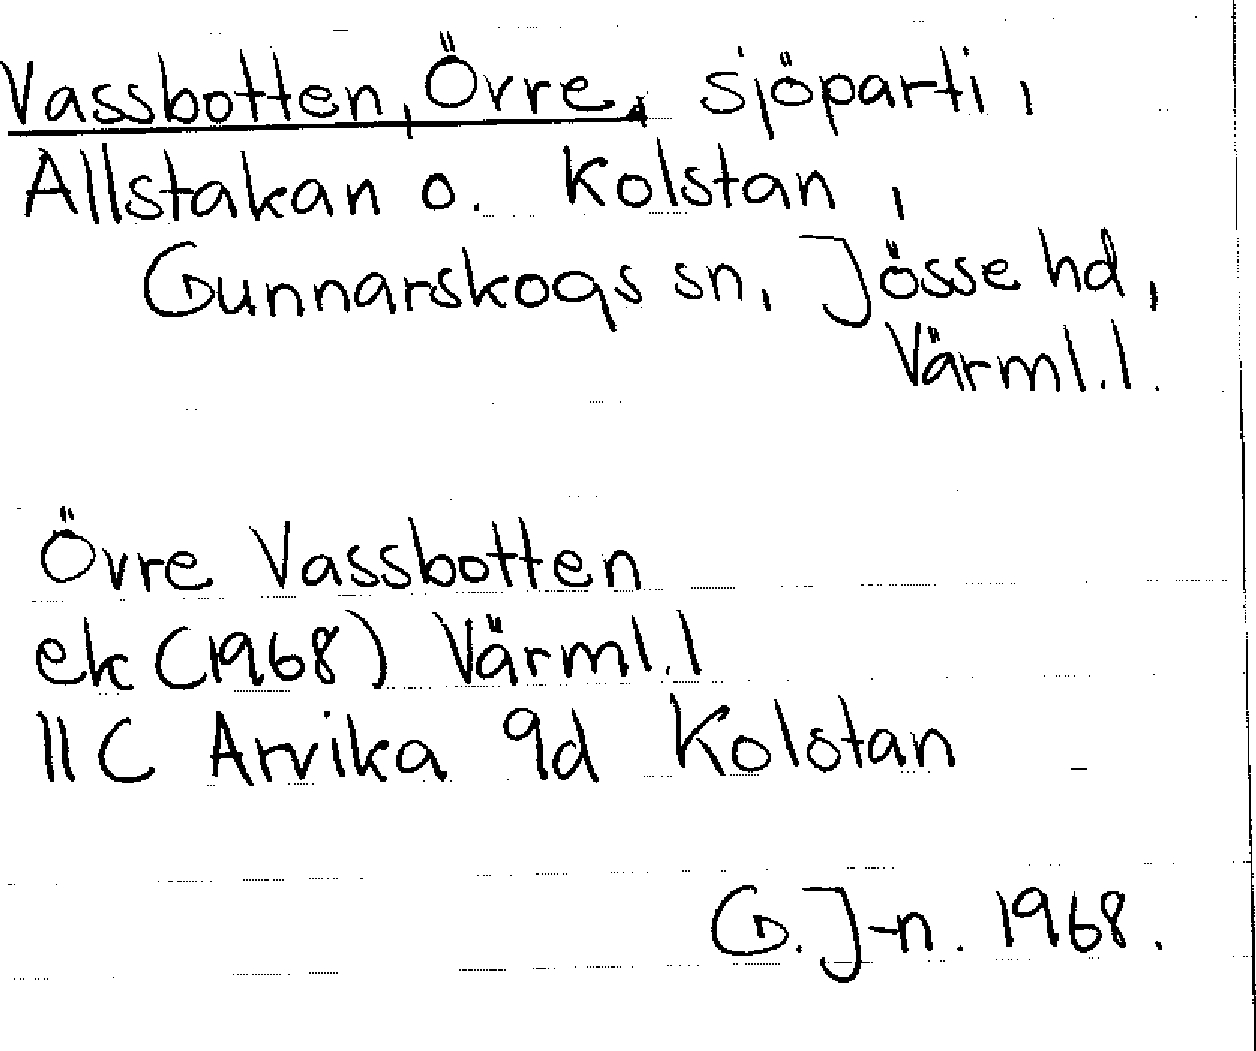 Vassbotten, Övre, sjöparti,
Allstakan o. Kolstan,
Gunnarskogs sn, Jösse hd,
Värml.l.
Övre Vassbotten
ek (1968) Värml.l
11C Arvika 9d Kolstan
G. J-n. 1968.